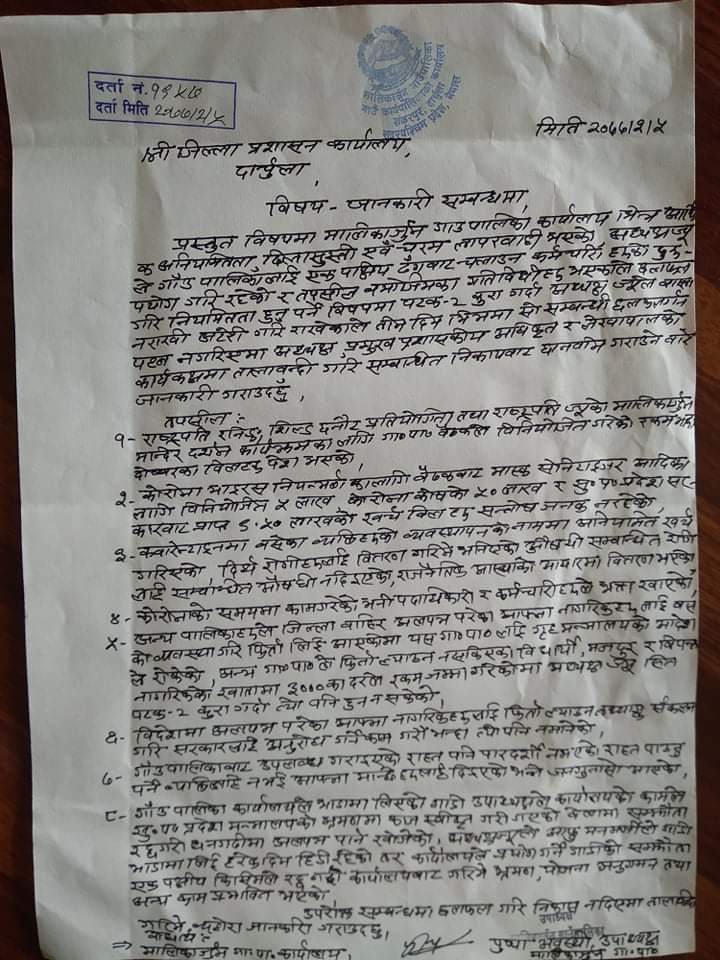 दर्ता नं. ११५७
दर्ता मिति २०७७/२/५
मालिकार्जुन गाउँपालिका
गाउँ कार्यपालिकाको कार्यालय
शंकरपुर, दार्चुला
सुदूरपश्चिम प्रदेश, नेपाल
मिति २०७७/२/५
श्री जिल्ला प्रशासन कार्यालय,
दार्चुला,
विषय - जानकारी सम्बन्धमा,
प्रस्तुत विषयमा मालिकार्जुन गाउपालिका कार्यालय भित्र आर्थि
क अनियमितता ढिलासुस्ती एवं चरम लापरवाही भएको अध्यक्षज्यू
ले गाँउ पालिकालाई एक पक्षिय ढँगबाट चलाउन कर्मचारी हरुको दुरू
पयोग गरि रहेको र तपसील बमोजिमका गतिविधीहरु भएकोले छलफल
गरि नियमितता हुनु पर्ने विषयमा पटक-२ कुरा गर्दा अध्यक्ष ज्यूले वास्ता
नराखी अटेरी गरि राखेकाले तीन दिन भित्रमा सो सम्बन्धी छलफल
पहल नगरिएमा अध्यक्ष, प्रमुख प्रशासकीय अधिकृत र लेखापालको
कार्यकक्षमा तालाबन्दी गरि सम्बन्धित निकायबाट छानविन गराउने बारे
जानकारी गराउदछु,
तपसील :-
१- राष्ट्रपति रनिङ्ग शिल्ड प्रतियोगिता तथा राष्ट्रपति ज्यूको मालिकार्जुन
मन्दिर दर्शन कार्यक्रमका लागि गा०पा० बैठकले विनियोजित गरेको रकम भन्दा
दोब्बरका बिलहरु पेश भएको,
२- कोरोना भाइरस नियन्त्रणका लागि बैठकबाट मास्क सेनिटाइजर आदिका
लागि विनियोजित ५ लाख कोरोना कोषका ५० लाख र सु०प० प्रदेश सर
कारबाट प्राप्त लाखको खर्च बिल हरु सन्तोष जनक नरहेको,
३- क्वारेन्टाइनमा बसेका व्यक्तिहरुको व्यवस्थापनको नाममा अनियमित खर्च
गरिएको दिर्घ रोगीहरुलाई वितरण गरिने भनिएको औषधी सम्बन्धित रोगी
लाई सम्बन्धित औषधी नदिइएको राजनैतिक आस्थाको आधारमा वितरण भएको
४- कोरोनाको समयमा कामगरेको भनी पदाधिकारी र कर्मचारीहरुले भत्ता खाएको,
५- अन्य पालिकाहरुले जिल्ला बाहिर अलपत्र परेका आफ्ना नागरिकहरुलाई बस
को व्यवस्था गरि फिर्ता लिई आएकोमा यस गा०पा० लाई गृह मन्त्रालयको आदेश
ले रोकेको, अन्य गा०पा०ले फिर्ता ल्याउन नसकिएका विद्यार्थी, मजदुर र विपन्न
नागरिकको खातामा ३००० का दरले रकम जम्मा गरेकोमा अध्यक्ष ज्यू सित
पटक-२ कुरा गर्दा त्यो पनि हुन नसकेको,
६- विदेशमा अलपत्र परेका आफ्ना नागरिकहरुलाई फिर्ता ल्याउन तथ्याङ्क संकलन
गरि सरकारलाई अनुरोध गर्ने काम गरौं भन्दा त्यो पनि नमानेको,
७- गाँउ पालिकाबाट उपलब्ध गराइएको राहत पनि पारदर्शी नभएको, राहत पाउनु
पर्ने व्यक्तिलाई नभई आफ्ना मान्छे हरुलाई दिइएको भन्ने जनगुनासो आएको,
८- गाँउ पालिका कार्यालयले भाडामा लिएको गाडी उपाध्यक्षले कार्यालयको कामले
सु०प० प्रदेश मन्त्रालयको भ्रमणमा काज स्वीकृत गरी गएको बेलामा सम्झौता
रद्द गरी धनगढीमा अलपत्र पार्न खोजेको, अध्यक्षज्यूले आफु मनमौजी गाडी
भाडामा लिई हरेक दिन हिडी रहेको तर कार्यालयले प्रयोग गर्ने गाडीको सम्झौता
एक पक्षीय किसिमले रद्द गर्दा कार्यालयबाट गरिने भ्रमण, योजना अनुगमन तथा
अन्य काम प्रभावित भएको,
उपरोक्त सम्बन्धमा छलफल गरि निकास नदिएमा तालाबन्दि
गरिने व्यहोरा जानकारी गराउदछु,
बोधार्थ :-
⇒ मालिकार्जुन गा.पा. कार्यालय,
पुष्पा अवस्थी, उपाध्यक्ष
मालिकार्जुन गा०पा०
उपाध्यक्ष